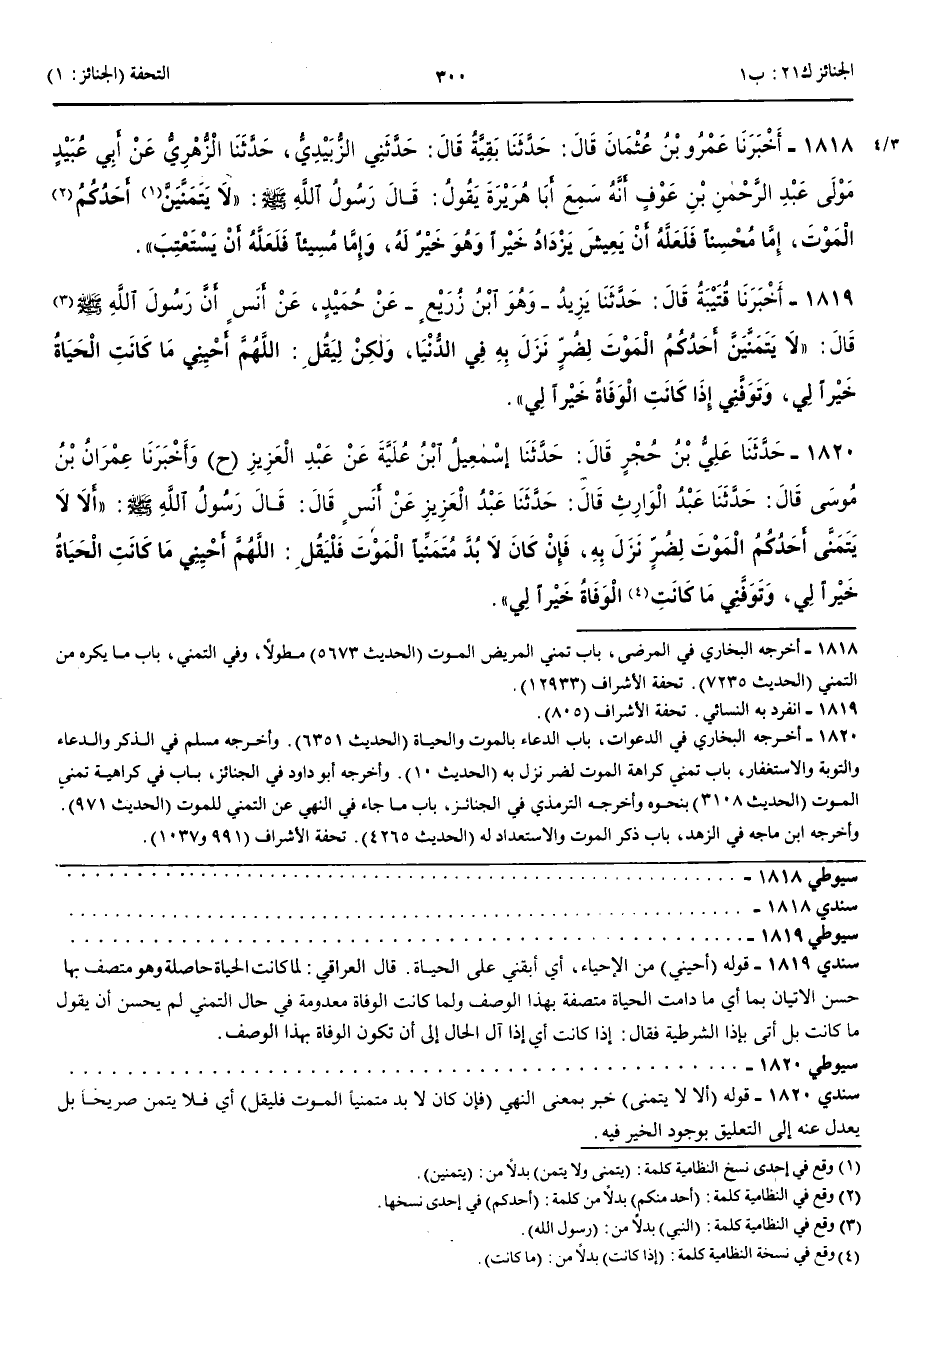 الجنائز ك٢١: ب١
٣٠٠
التحفة (الجنائز: ١)
٤/٣
١٨١٨ - أَخْبَرَنَا عَمْرُو بْنُ عُثْمَانَ قَالَ: حَدَّثَنَا بَقِيَّةُ قَالَ: حَدَّثَنِي الزُّبَيْدِيُّ، حَدَّثَنَا الزُّهْرِيُّ عَنْ أَبِي عُبَيْدٍ
مَوْلَى عَبْدِ الرَّحْمٰنِ بْنِ عَوْفٍ أَنَّهُ سَمِعَ أَبَا هُرَيْرَةَ يَقُولُ: قَالَ رَسُولُ ٱللَّهِ ﷺ: «لَا يَتَمَنَّيَنَّ(١) أَحَدُكُمُ(٢)
الْمَوْتَ، إِمَّا مُحْسِناً فَلَعَلَّهُ أَنْ يَعِيشَ يَزْدَادُ خَيْراً وَهُوَ خَيْرٌ لَهُ، وَإِمَّا مُسِيئاً فَلَعَلَّهُ أَنْ يَسْتَعْتِبَ».
١٨١٩ - أَخْبَرَنَا قُتَيْبَةُ قَالَ: حَدَّثَنَا يَزِيدُ - وَهُوَ ٱبْنُ زُرَيْعٍ - عَنْ حُمَيْدٍ، عَنْ أَنَسٍ أَنَّ رَسُولَ ٱللَّهِ ﷺ(٣)
قَالَ: «لَا يَتَمَنَّيَنَّ أَحَدُكُمُ الْمَوْتَ لِضُرٍّ نَزَلَ بِهِ فِي الدُّنْيَا، وَلٰكِنْ لِيَقُلِ: اللَّهُمَّ أَحْيِنِي مَا كَانَتِ الْحَيَاةُ
خَيْراً لِي، وَتَوَفَّنِي إِذَا كَانَتِ الْوَفَاةُ خَيْراً لِي».
١٨٢٠ - حَدَّثَنَا عَلِيُّ بْنُ حُجْرٍ قَالَ: حَدَّثَنَا إِسْمٰعِيلُ ٱبْنُ عُلَيَّةَ عَنْ عَبْدِ الْعَزِيزِ (ح) وَأَخْبَرَنَا عِمْرَانُ بْنُ
مُوسَى قَالَ: حَدَّثَنَا عَبْدُ الْوَارِثِ قَالَ: حَدَّثَنَا عَبْدُ الْعَزِيزِ عَنْ أَنَسٍ قَالَ: قَالَ رَسُولُ ٱللَّهِ ﷺ: «أَلَا لَا
يَتَمَنَّى أَحَدُكُمُ الْمَوْتَ لِضُرٍّ نَزَلَ بِهِ، فَإِنْ كَانَ لَا بُدَّ مُتَمَنِّياً الْمَوْتَ فَلْيَقُلِ: اللَّهُمَّ أَحْيِنِي مَا كَانَتِ الْحَيَاةُ
خَيْراً لِي، وَتَوَفَّنِي مَا كَانَتِ(٤) الْوَفَاةُ خَيْراً لِي».
١٨١٨ - أخرجه البخاري في المرضى، باب تمني المريض الموت (الحديث ٥٦٧٣) مطولاً، وفي التمني، باب ما يكره من
التمني (الحديث ٧٢٣٥). تحفة الأشراف (١٢٩٣٣).
١٨١٩ - انفرد به النسائي. تحفة الأشراف (٨٠٥).
١٨٢٠ - أخرجه البخاري في الدعوات، باب الدعاء بالموت والحياة (الحديث ٦٣٥١). وأخرجه مسلم في الذكر والدعاء
والتوبة والاستغفار، باب تمني كراهة الموت لضر نزل به (الحديث ١٠). وأخرجه أبو داود في الجنائز، باب في كراهية تمني
الموت (الحديث ٣١٠٨) بنحوه وأخرجه الترمذي في الجنائز، باب ما جاء في النهي عن التمني للموت (الحديث ٩٧١).
وأخرجه ابن ماجه في الزهد، باب ذكر الموت والاستعداد له (الحديث ٤٢٦٥). تحفة الأشراف (٩٩١ و١٠٣٧).
سيوطي ١٨١٨ - . . . . . . . . . . . . . . . . . . . .
سندي ١٨١٨ - . . . . . . . . . . . . . . . . . . . .
سيوطي ١٨١٩ - . . . . . . . . . . . . . . . . . . . .
سندي ١٨١٩ - قوله (أحيني) من الإحياء، أي أبقني على الحياة. قال العراقي: لما كانت الحياة حاصلة وهو متصف بها
حسن الاتيان بما أي ما دامت الحياة متصفة بهذا الوصف ولما كانت الوفاة معدومة في حال التمني لم يحسن أن يقول
ما كانت بل أتى بإذا الشرطية فقال: إذا كانت أي إذا آل الحال إلى أن تكون الوفاة بهذا الوصف.
سيوطي ١٨٢٠ - . . . . . . . . . . . . . . . . . . . .
سندي ١٨٢٠ - قوله (ألا لا يتمنى) خبر بمعنى النهي (فإن كان لا بد متمنياً الموت فليقل) أي فلا يتمن صريحاً بل
يعدل عنه إلى التعليق بوجود الخير فيه.
(١) وقع في إحدى نسخ النظامية كلمة: (يتمنى ولا يتمن) بدلاً من: (يتمنين).
(٢) وقع في النظامية كلمة: (أحد منكم) بدلاً من كلمة: (أحدكم) في إحدى نسخها.
(٣) وقع في النظامية كلمة: (النبي) بدلاً من: (رسول الله).
(٤) وقع في نسخة النظامية كلمة: (إذا كانت) بدلاً من: (ما كانت).